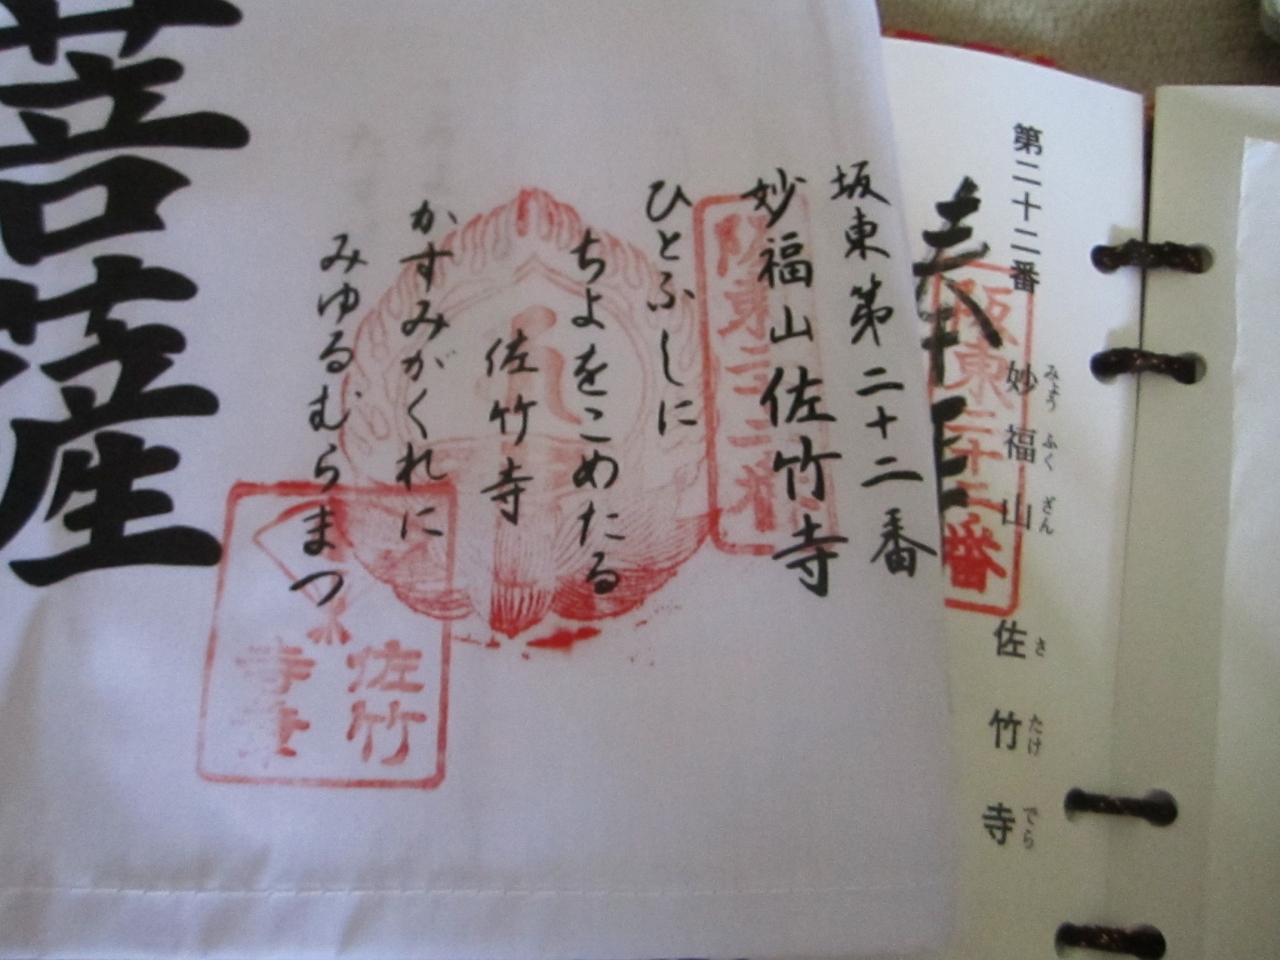 第二十二番
妙福山
みょうふくざん
佐竹寺
さたけでら
坂東第二十二番
妙福山佐竹寺
ひとふしに
ちよをこめたる
佐竹寺
かすみがくれに
みゆるむらまつ
阪東二十二番
阪東二十二番
佐竹
寺
菩薩